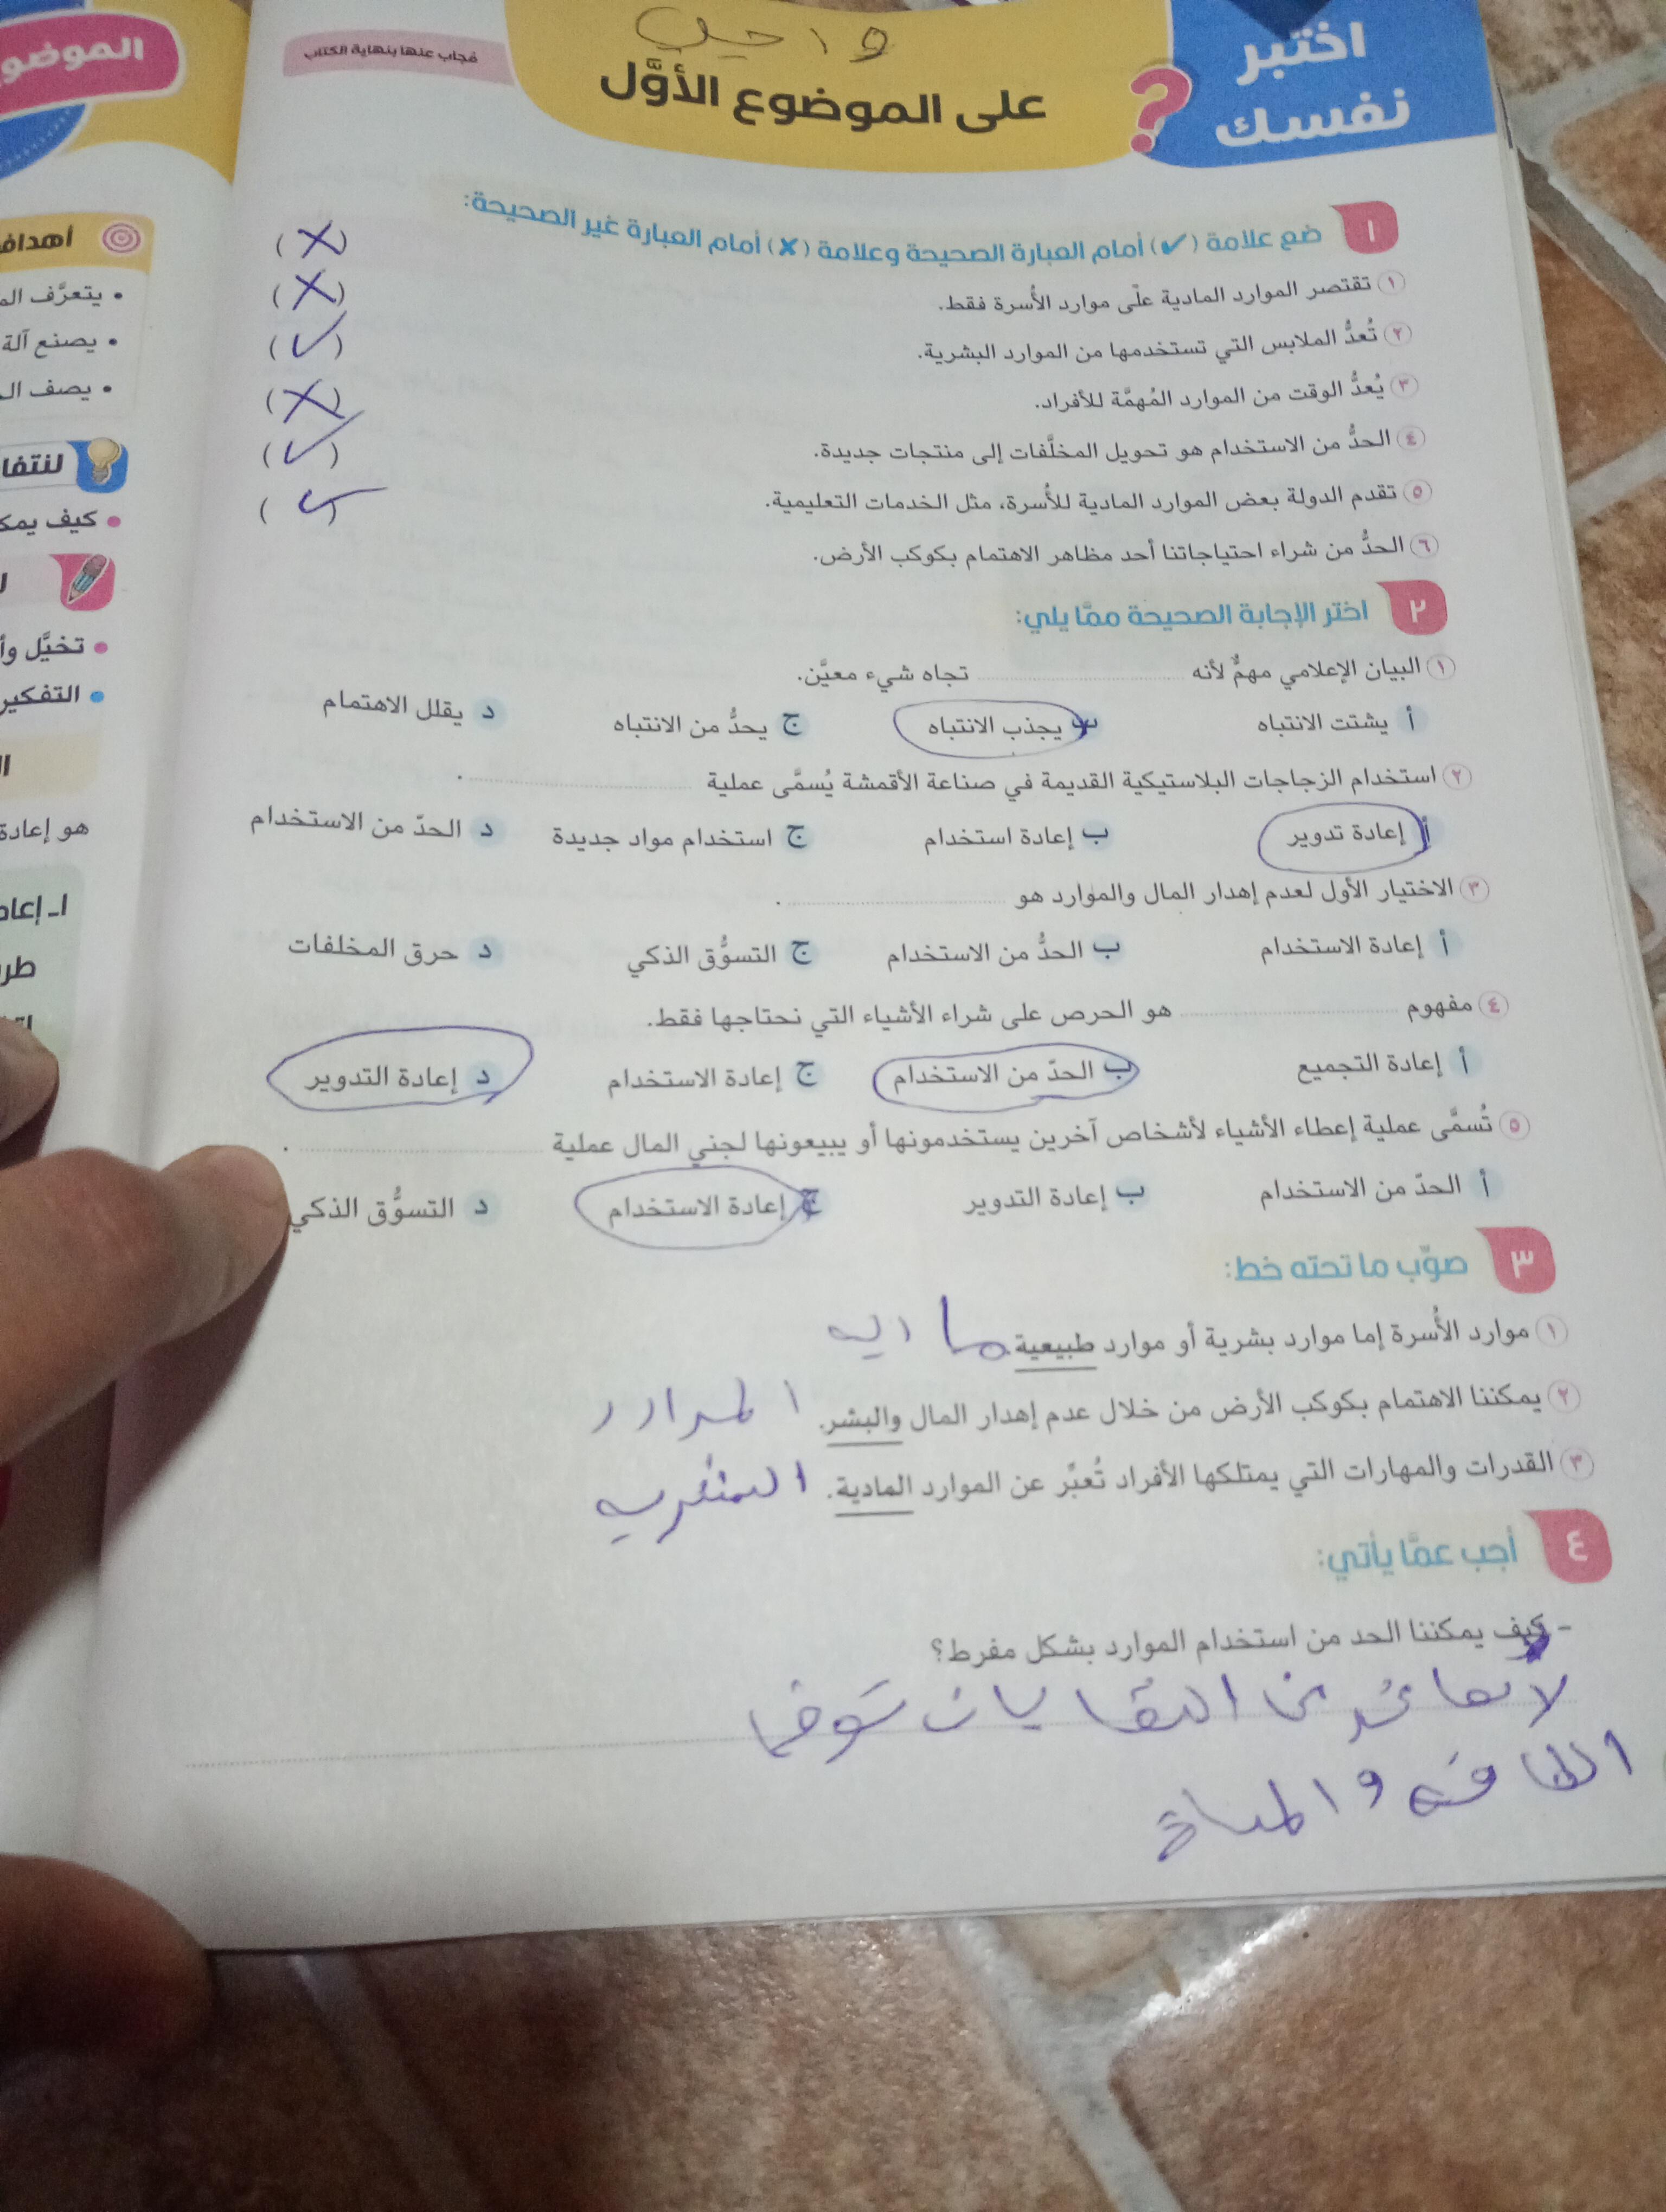 واجب
اختبر نفسك
على الموضوع الأوَّل
مُجاب عنها بنهاية الكتاب
١ ضع علامة (✓) أمام العبارة الصحيحة وعلامة (✗) أمام العبارة غير الصحيحة:
١ تقتصر الموارد المادية على موارد الأُسرة فقط. (✗)
٢ تُعدُّ الملابس التي تستخدمها من الموارد البشرية. (✗)
٣ يُعدُّ الوقت من الموارد المُهمَّة للأفراد. (✓)
٤ الحدُّ من الاستخدام هو تحويل المخلَّفات إلى منتجات جديدة. (✗)
٥ تقدم الدولة بعض الموارد المادية للأُسرة، مثل الخدمات التعليمية. (✓)
٦ الحدُّ من شراء احتياجاتنا أحد مظاهر الاهتمام بكوكب الأرض. (✓)
٢ اختر الإجابة الصحيحة ممَّا يلي:
١ البيان الإعلامي مهمٌّ لأنه ........ تجاه شيء معيَّن.
أ يشتت الانتباه ب يجذب الانتباه ج يحدُّ من الانتباه د يقلل الاهتمام
٢ استخدام الزجاجات البلاستيكية القديمة في صناعة الأقمشة يُسمَّى عملية ........ .
أ إعادة تدوير ب إعادة استخدام ج استخدام مواد جديدة د الحدّ من الاستخدام
٣ الاختيار الأول لعدم إهدار المال والموارد هو ........ .
أ إعادة الاستخدام ب الحدُّ من الاستخدام ج التسوُّق الذكي د حرق المخلفات
٤ مفهوم ........ هو الحرص على شراء الأشياء التي نحتاجها فقط.
أ إعادة التجميع ب الحدّ من الاستخدام ج إعادة الاستخدام د إعادة التدوير
٥ تُسمَّى عملية إعطاء الأشياء لأشخاص آخرين يستخدمونها أو يبيعونها لجني المال عملية ........ .
أ الحدّ من الاستخدام ب إعادة التدوير ج إعادة الاستخدام د التسوُّق الذكي
٣ صوِّب ما تحته خط:
١ موارد الأُسرة إما موارد بشرية أو موارد طبيعية. مادية
٢ يمكننا الاهتمام بكوكب الأرض من خلال عدم إهدار المال والبشر. الموارد
٣ القدرات والمهارات التي يمتلكها الأفراد تُعبِّر عن الموارد المادية. البشرية
٤ أجب عمَّا يأتي:
- كيف يمكننا الحد من استخدام الموارد بشكل مفرط؟
النفايات
الطاقه والمياة
الموضو
أهداف
• يتعرَّف
• يصنع آلة
• يصف
لنتفا
• كيف يمك
• تخيَّل
• التفكير
هو إعادة
١ـ إعاد